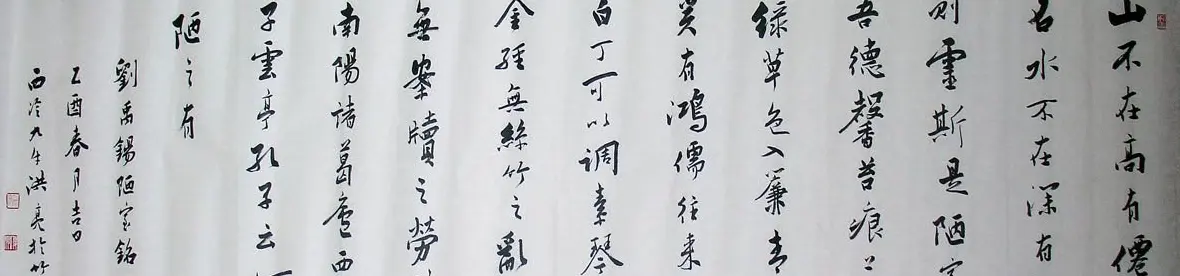 山不在高有僊
名水不在深有
则靈斯是陋室
吾德馨苔痕上
綠草色入簾青
笑有鴻儒往来
白丁可以調素琴
金經無絲竹之亂
無案牘之勞
南陽諸葛廬西
子雲亭孔子云何
陋之有
劉禹錫陋室銘
乙酉春月吉日
西泠九牛洪亮於竹